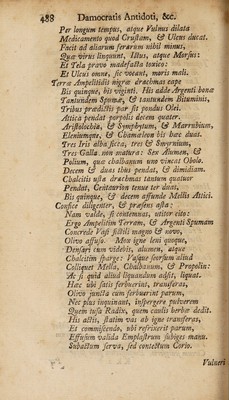 488 Damocratis Antidoti, &c.
Per longum tempus, atque Vulnus dilata
Medicamento quod Crustam, & Ulcus ducat.
Facit ad aliarum ferarum nihil minus,
Quæ virus linquunt, Ictus, atque Morsus:
Et Tela pravo madefacta toxico:
Et Ulcus omne, sic vocant, moris mali.
Terræ Ampelitidis nigræ drachmas cape
Bis quinque, bis viginti. His adde Argenti bonæ
Tantundem Spumæ, & tantundem Bituminis,
Tribus prædictis par sit pondus Olei.
Attica pendat porphis decem quater.
Aristolochia, & Symphytum, & Marrubium,
Eleniumque, & Chamæleon bis hæc duas.
Tres Iris alba sicca, tres & Smyrnium,
Tres Galla non matura: Sex Alumen, &
Polium, quæ chalbanum uno vincat Obolo.
Decem & duas thus pendat, & dimidiam.
Chalcitis usta drachmas tantum quatuor
Pendat, Centaurion tenue ter duas,
Bis quinque, & decem assunde Mellis Attici.
Confice diligenter, & præsens asta:
Nam valde, si contemnas, utiter cito:
Ergo Ampelitim Terram, & Argenti Spumam
Concrede Vasi fictili magno & novo,
Olivo affuso. Mox igne leni quoque,
Densari cum videbis, alumen, atque
Chalcitim sparge: Vasque seorsum aliud
Coliquet Mella, Chalbanum, & Propolin:
At si quid aliud liquandum adsis, liqua.
Hæc ubi satis ferbuerint, transferas,
Olivo juncta cum ferbuerint parum,
Nec plus inquinant, inspergere pulverem
Quem tusæ Radix, quem caulis herbæ dedit.
His actis, statim vas ab igne transferas,
Et commiscendo, ubi refrixerit parum,
Effusum valida Emplastrum subiges manu.
Subactum serva, sed contectum Corio.
Vulneri